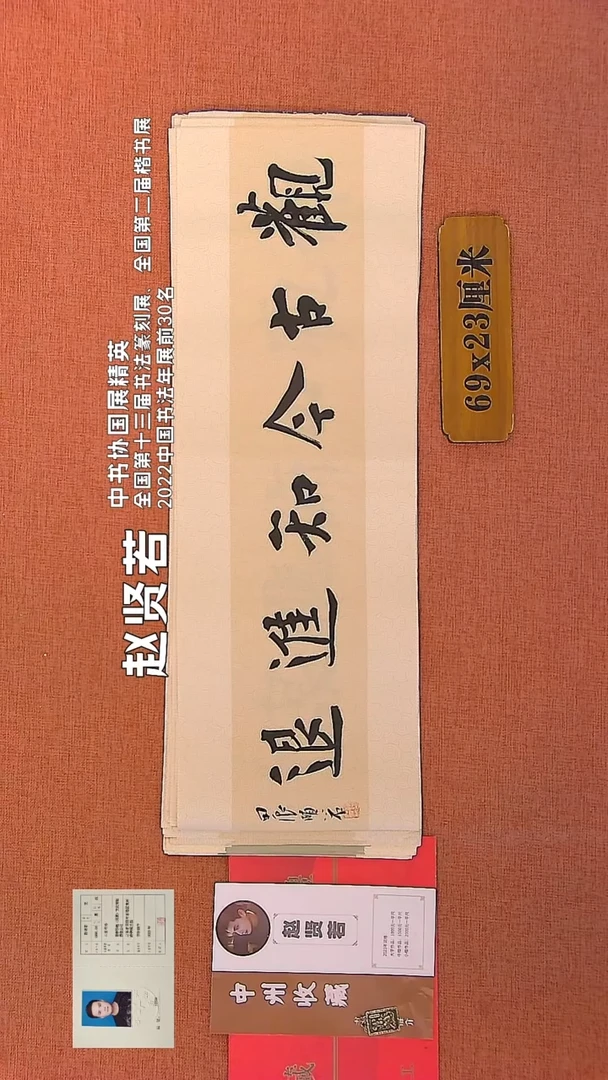 赵贤若
中书协国展精英
全国第十三届书法篆刻展、全国第二届楷书展
2022中国书法年展前30名
觀古今知進退
69x23厘米
赵贤若
中州收藏